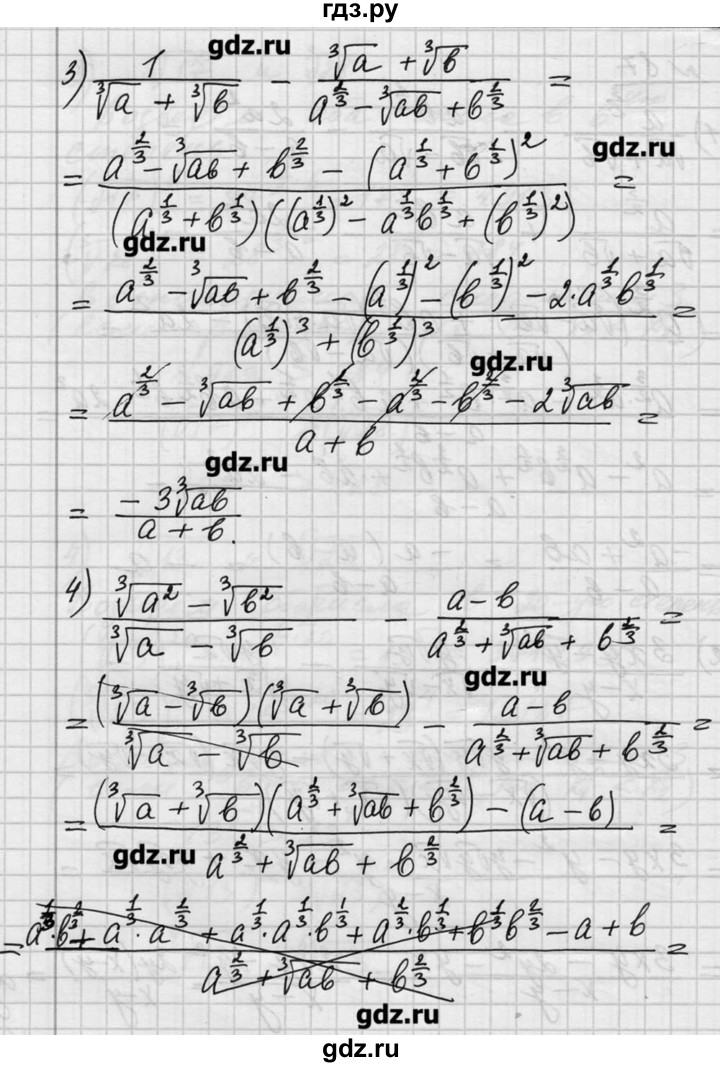 гдз.ру
gdz.ru
3) 1/(∛a + ∛b) − (∛a + ∛b)/(a^(2/3) − ∛ab + b^(2/3)) =
gdz.ru
= (a^(2/3) − ∛ab + b^(2/3) − (a^(1/3) + b^(1/3))^2)/((a^(1/3) + b^(1/3))((a^(1/3))^2 − a^(1/3)b^(1/3) + (b^(1/3))^2)) =
gdz.ru
= (a^(2/3) − ∛ab + b^(2/3) − (a^(1/3))^2 − (b^(1/3))^2 − 2·a^(1/3)b^(1/3))/((a^(1/3))^3 + (b^(1/3))^3) =
gdz.ru
= (a^(2/3) − ∛ab + b^(2/3) − a^(2/3) − b^(2/3) − 2∛ab)/(a + b) =
gdz.ru
= (−3∛ab)/(a + b).
4) (∛a² − ∛b²)/(∛a − ∛b) − (a − b)/(a^(2/3) + ∛ab + b^(2/3)) =
gdz.ru
= ((∛a − ∛b)(∛a + ∛b))/(∛a − ∛b) − (a − b)/(a^(2/3) + ∛ab + b^(2/3)) =
= ((∛a + ∛b)(a^(2/3) + ∛ab + b^(2/3)) − (a − b))/(a^(2/3) + ∛ab + b^(2/3)) =
gdz.ru
= (a^(1/3)·b^(2/3) + a^(1/3)·a^(2/3) + a^(1/3)·a^(1/3)·b^(1/3) + a^(2/3)·b^(1/3) + b^(1/3)b^(2/3) − a + b)/(a^(2/3) + ∛ab + b^(2/3)) =
gdz.ru
gdz.ru